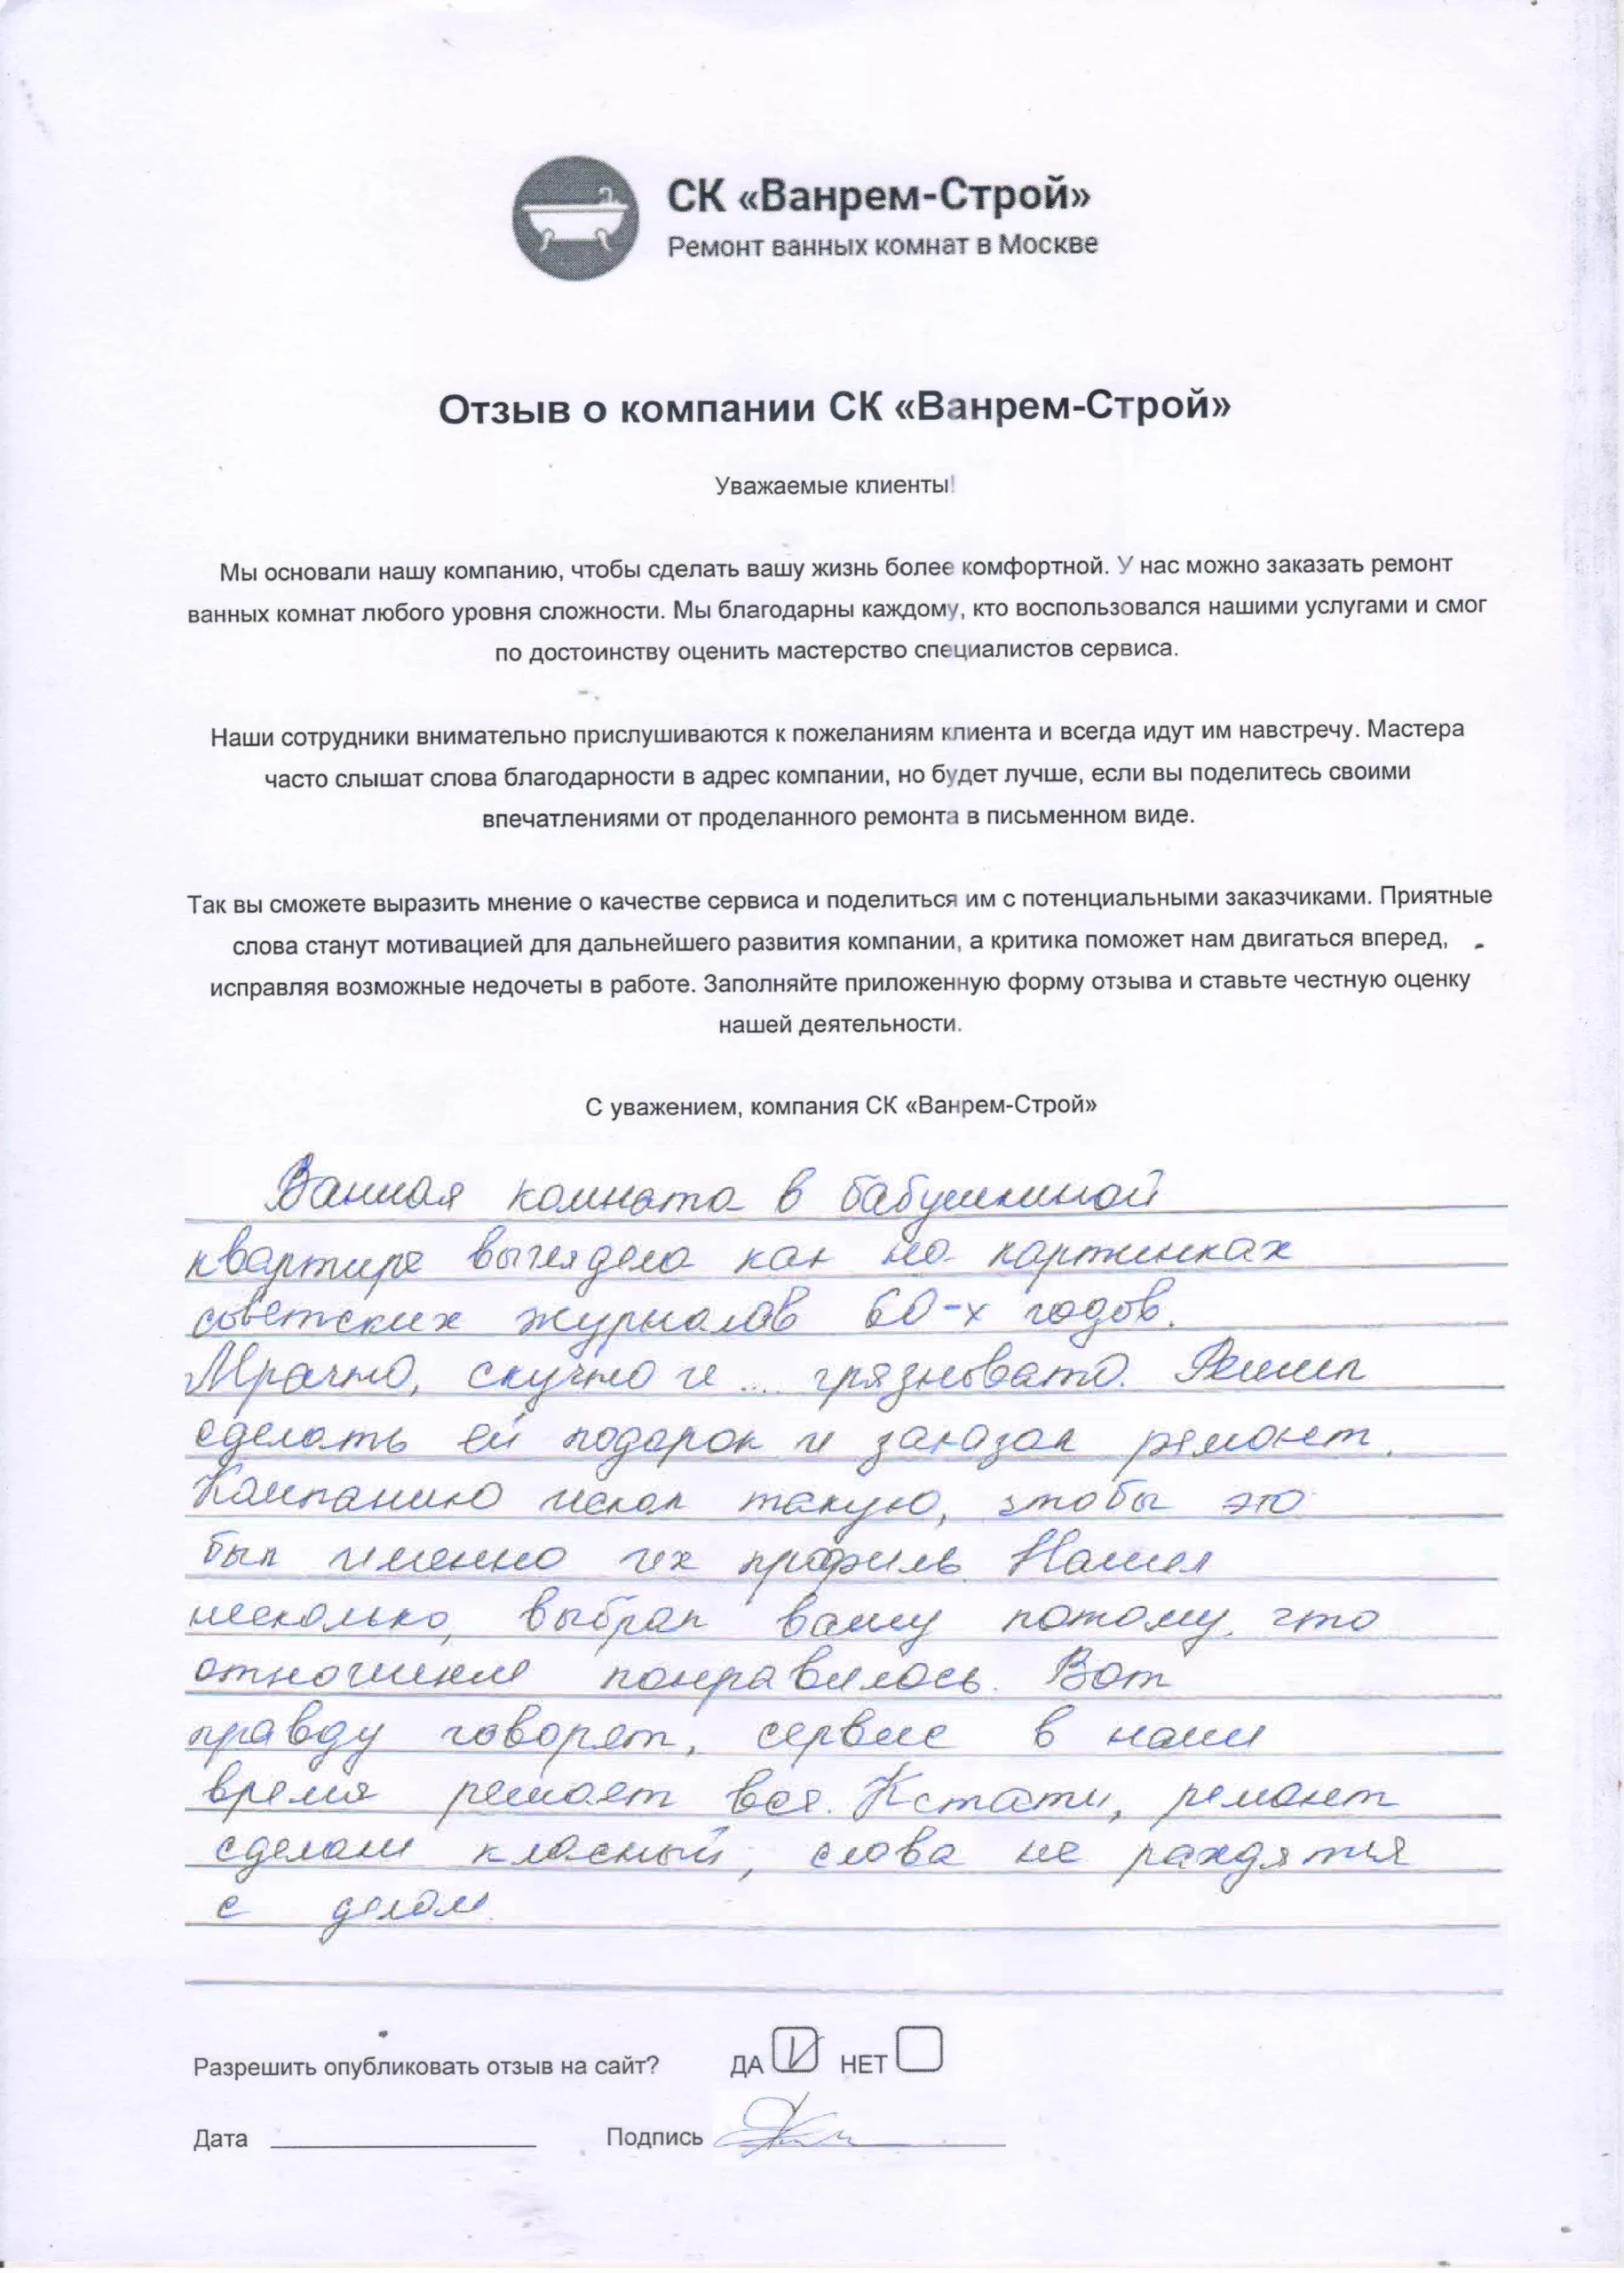 СК «Ванрем-Строй»
Ремонт ванных комнат в Москве
Отзыв о компании СК «Ванрем-Строй»
Уважаемые клиенты!
Мы основали нашу компанию, чтобы сделать вашу жизнь более комфортной. У нас можно заказать ремонт
ванных комнат любого уровня сложности. Мы благодарны каждому, кто воспользовался нашими услугами и смог
по достоинству оценить мастерство специалистов сервиса.
Наши сотрудники внимательно прислушиваются к пожеланиям клиента и всегда идут им навстречу. Мастера
часто слышат слова благодарности в адрес компании, но будет лучше, если вы поделитесь своими
впечатлениями от проделанного ремонта в письменном виде.
Так вы сможете выразить мнение о качестве сервиса и поделиться им с потенциальными заказчиками. Приятные
слова станут мотивацией для дальнейшего развития компании, а критика поможет нам двигаться вперед,
исправляя возможные недочеты в работе. Заполняйте приложенную форму отзыва и ставьте честную оценку
нашей деятельности.
С уважением, компания СК «Ванрем-Строй»
Ванная комната в бабушкиной
квартире выглядела как на картинках
советских журналов 60-х годов.
Мрачно, скучно и ... грязновато. Решил
сделать ей подарок и заказал ремонт.
Компанию искал такую, чтобы это
был именно их профиль. Нашел
несколько, выбрал вашу потому, что
отношение понравилось. Вот
правду говорят, сервис в наше
время решает все. Кстати, ремонт
сделали класный, слова не расхдятся
с делом.
Разрешить опубликовать отзыв на сайт? ДА НЕТ
Дата Подпись